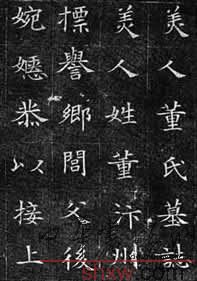 美人董氏墓誌
美人姓董汴州
摽譽鄉閭父後
婉嫕恭以接上